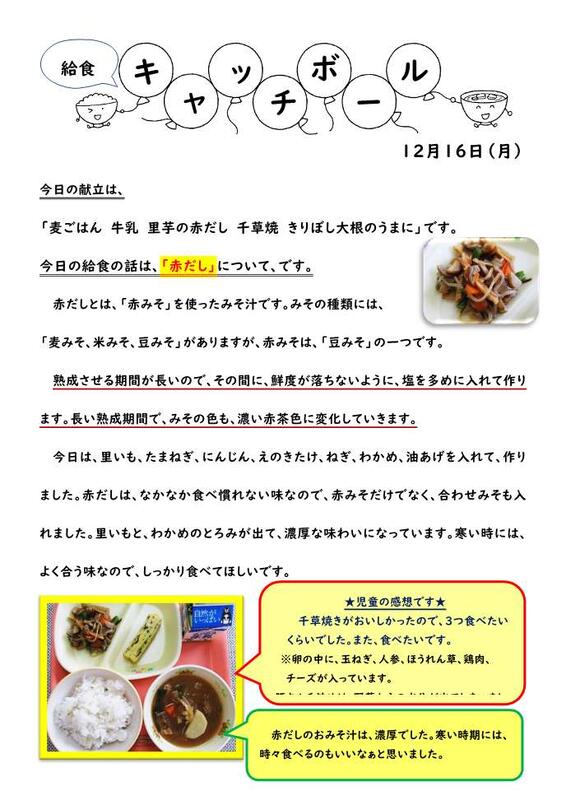 給食
キャッチボール
12月16日(月)
今日の献立は、
「麦ごはん 牛乳 里芋の赤だし 千草焼 きりぼし大根のうまに」です。
今日の給食の話は、「赤だし」について、です。
赤だしとは、「赤みそ」を使ったみそ汁です。みその種類には、
「麦みそ、米みそ、豆みそ」がありますが、赤みそは、「豆みそ」の一つです。
熟成させる期間が長いので、その間に、鮮度が落ちないように、塩を多めに入れて作り
ます。長い熟成期間で、みその色も、濃い赤茶色に変化していきます。
今日は、里いも、たまねぎ、にんじん、えのきたけ、ねぎ、わかめ、油あげを入れて、作り
ました。赤だしは、なかなか食べ慣れない味なので、赤みそだけでなく、合わせみそも入
れました。里いもと、わかめのとろみが出て、濃厚な味わいになっています。寒い時には、
よく合う味なので、しっかり食べてほしいです。
★児童の感想です★
千草焼きがおいしかったので、3つ食べたい
くらいでした。また、食べたいです。
※卵の中に、玉ねぎ、人参、ほうれん草、鶏肉、
チーズが入っています。
自然が
いっぱい
赤だしのおみそ汁は、濃厚でした。寒い時期には、
時々食べるのもいいなぁと思いました。